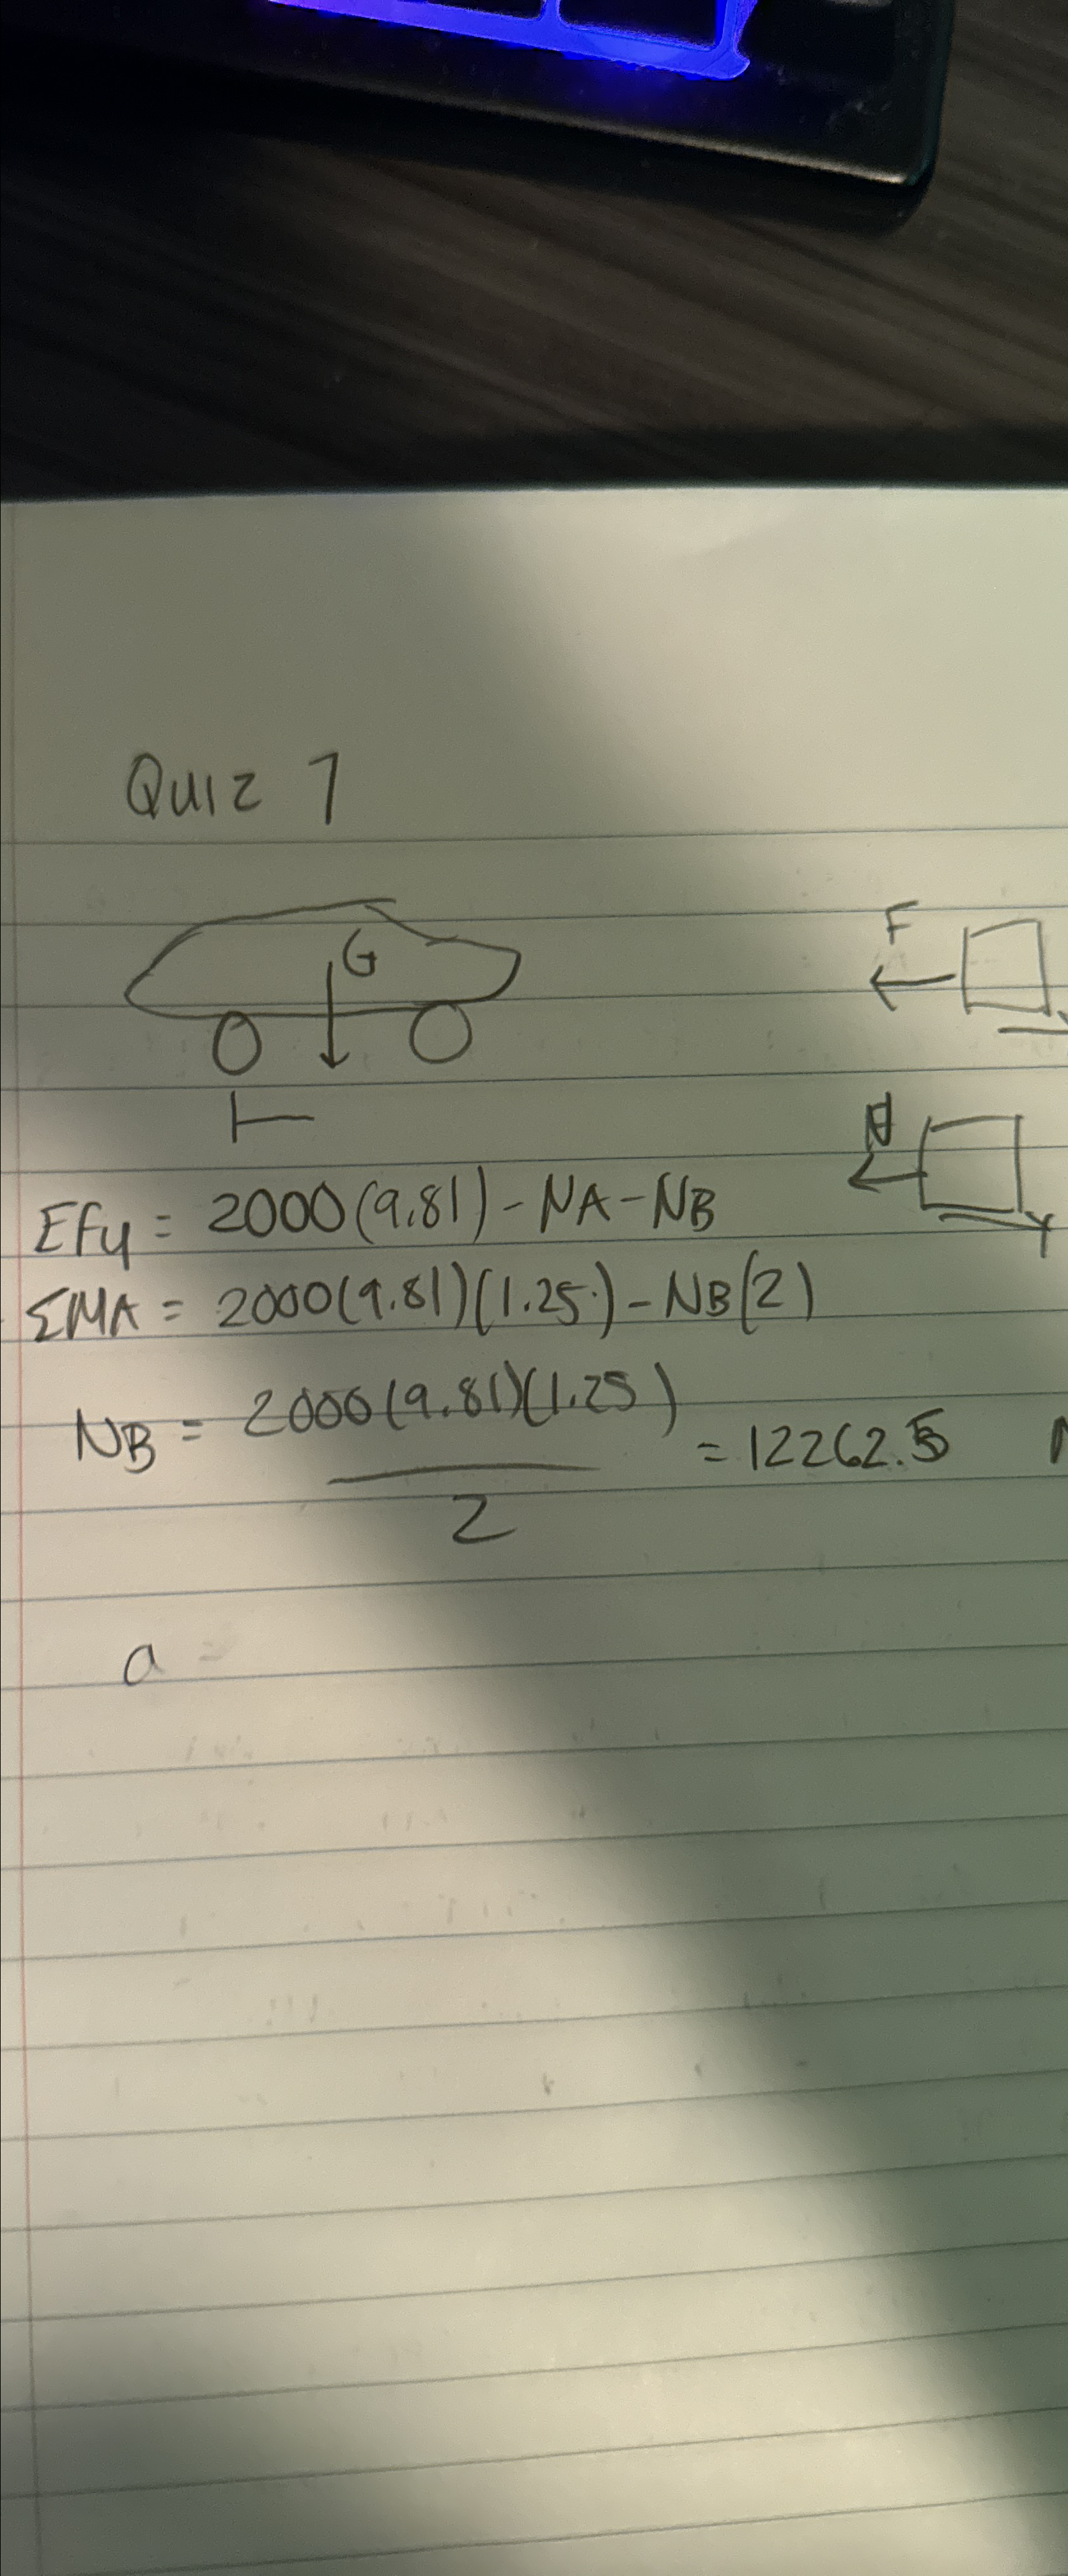 Quiz 7
G
F
N
EFy = 2000(9.81) - NA - NB
ΣMA = 2000(9.81)(1.25) - NB(2)
NB = 2000(9.81)(1.25)
= 12262.5
2
a =